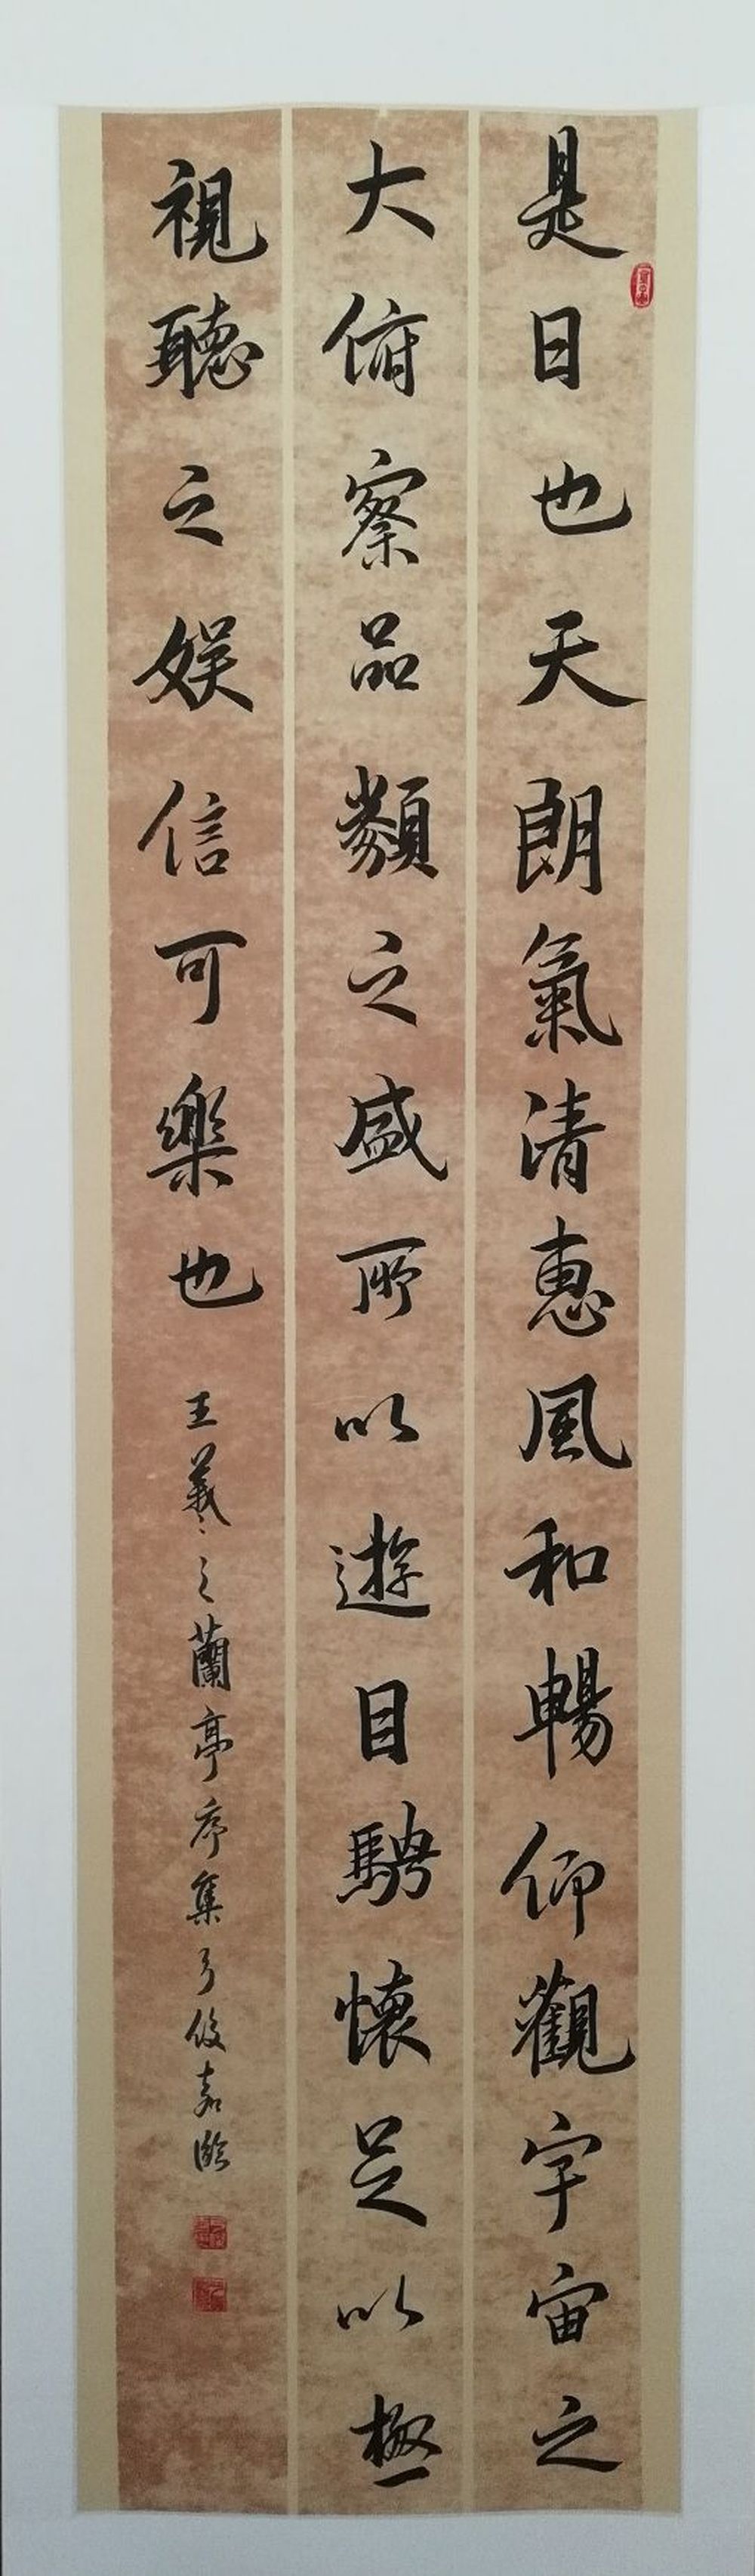 是日也天朗氣清惠風和暢仰觀宇宙之
大俯察品類之盛所以遊目騁懷足以極
視聽之娛信可樂也
王羲之蘭亭序集